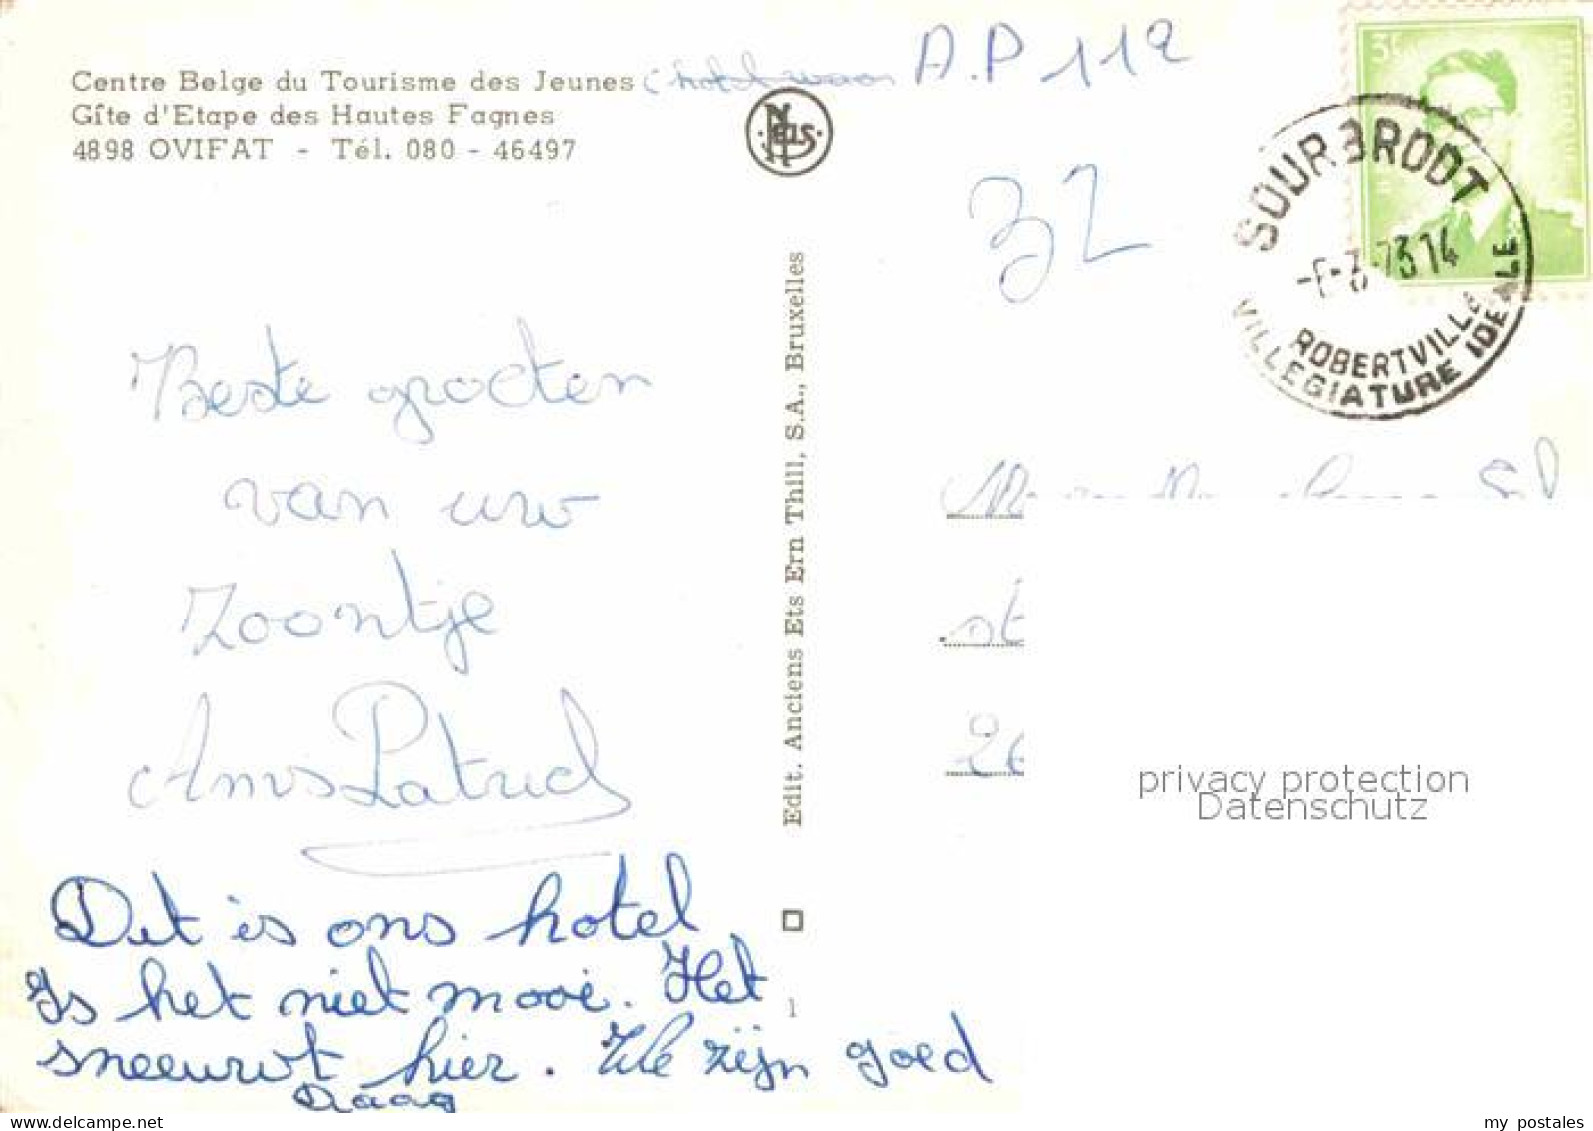 Centre Belge du Tourisme des Jeunes (hotel
Gîte d'Etape des Hautes Fagnes
4898 OVIFAT - Tél. 080 - 46497
A.P 112
32
Nels
3F
SOURBRODT
73 14
ROBERTVILLE
VILLEGIATURE IDEALE
Beste groeten
van uw
zoontje
Patrick
Dit is ons hotel
Is het niet mooi. Het
sneeuwt hier. We zijn goed
Edit. Anciens Ets Ern Thill, S.A., Bruxelles
1
st
26
privacy protection
Datenschutz
delcampe.net
my_postales